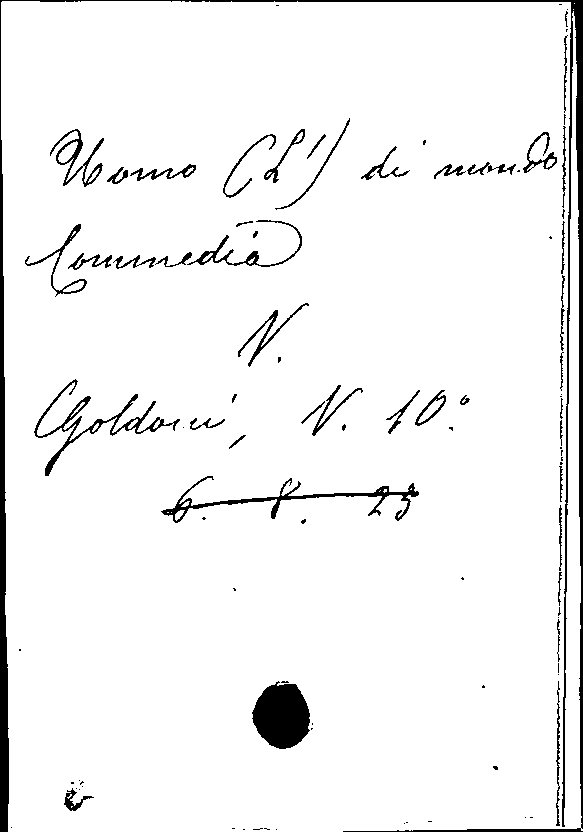 Uomo (L') di mondo
Commedia
V.
Goldoni, V. 10°.
6. 8. 25